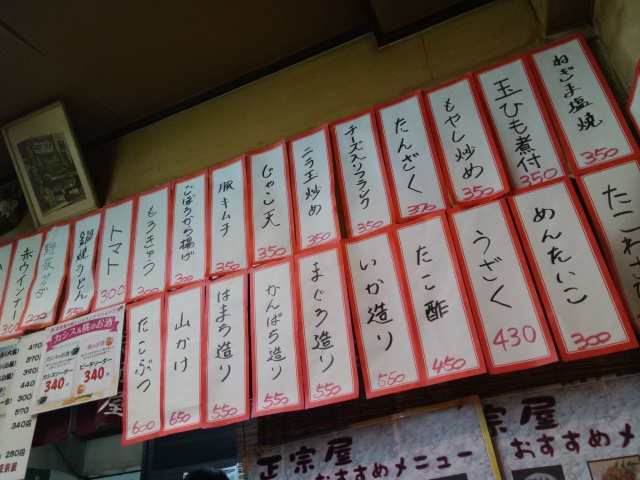 ねぎま塩焼
350
玉ひも煮付
350
もやし炒め
350
たんざく
370
チーズ入りフランク
350
ニラ玉炒め
350
じゃこ天
350
豚キムチ
350
ごぼうから揚げ
300
もろきゅう
300
トマト
300
鍋焼うどん
550
野菜サラダ
200
赤ウインナー
300
めんたいこ
300
うざく
430
たこ酢
450
いか造り
550
まぐろ造り
550
かんぱち造り
550
はまち造り
550
山かけ
650
たこぶつ
600
カシス&桃のお酒
カシスソーダー
340
ピーチソーダー
340
470
370
390
300
570
340円
280円
正宗屋
おすすめメニュー
正宗屋
おすすめメ